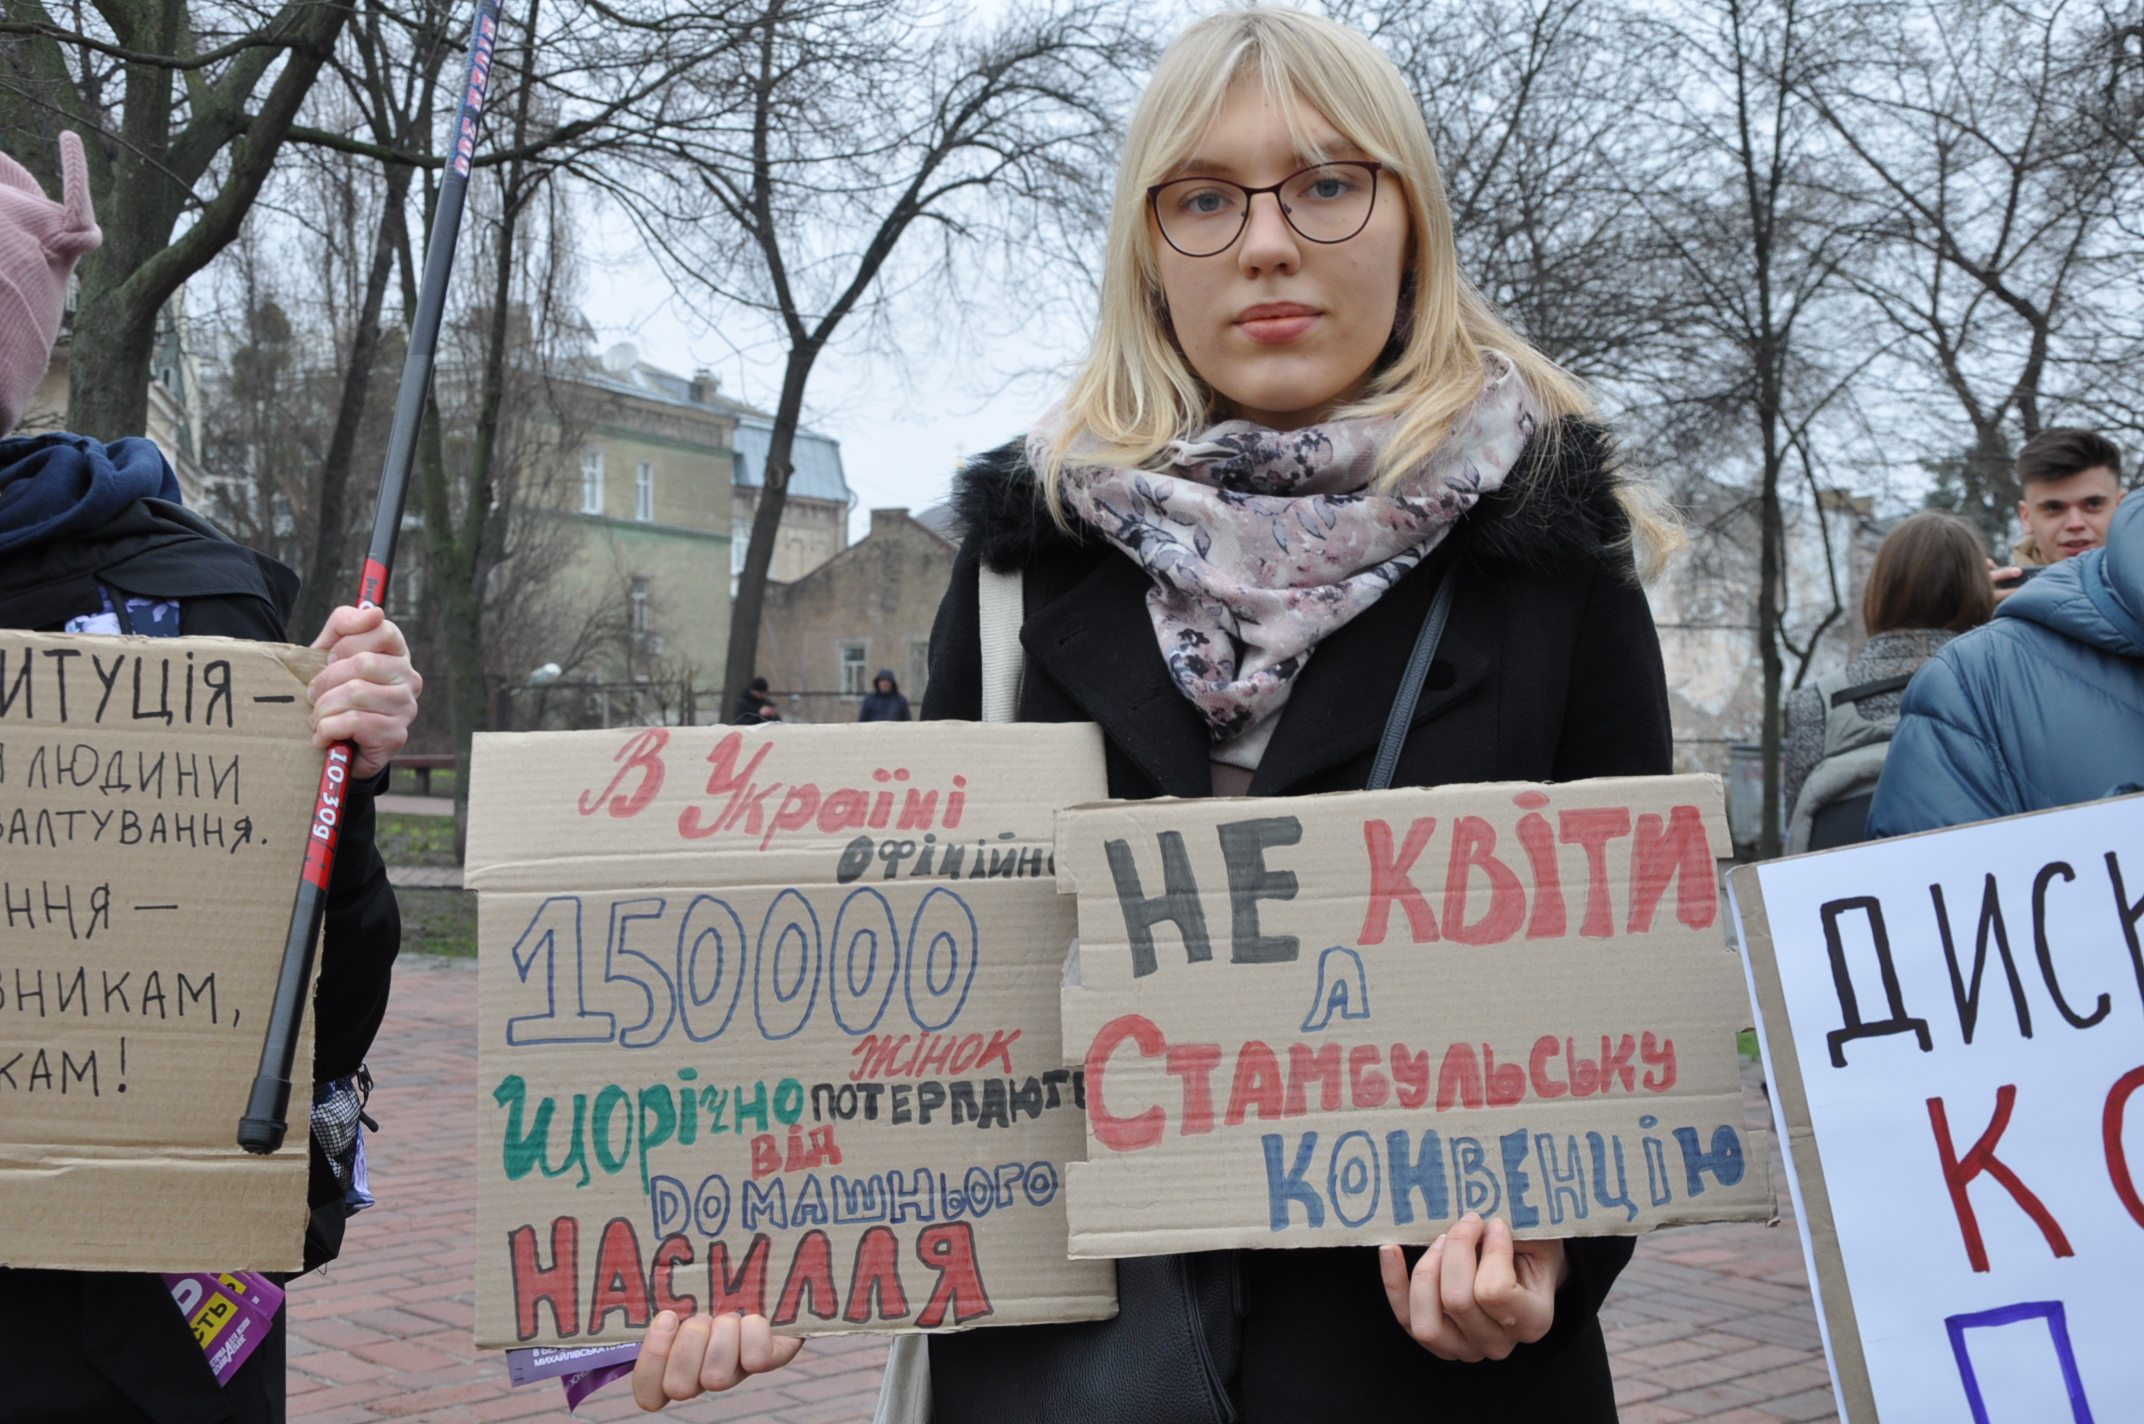 RIVER 300
10-30g
ИТУЦІЯ –
ЛЮДИНИ
ВАЛТУВАННЯ.
ННЯ –
ВНИКАМ,
КАМ!
В Україні
офіційно
150000
жінок
щорічно потерпають
від
домашнього
насилля
НЕ КВІТИ
А
СТАМБУЛЬСЬКУ
КОНВЕНЦІЮ
ДИСК
К
П
СТЬ
8 БЕ
МИХАЙЛІВСЬКА ПЛОЩ